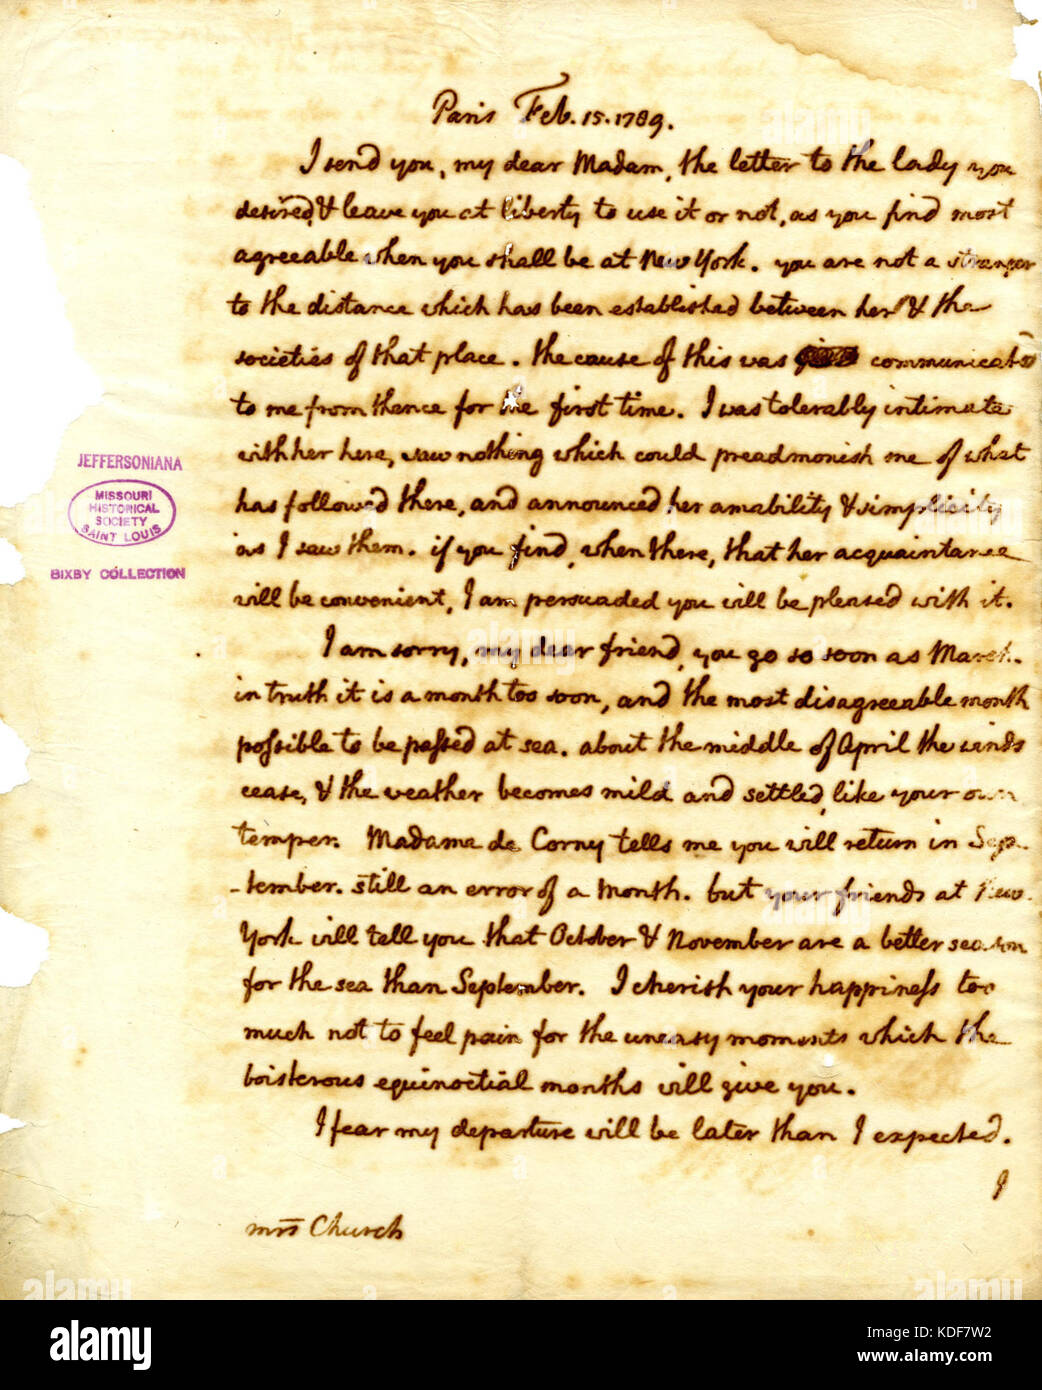 Paris Feb. 15. 1789.
I send you, my dear Madam, the letter to the lady you
desired, & leave you at liberty to use it or not, as you find most
agreeable when you shall be at New York. you are not a stranger
to the distance which has been established between her & the
societies of that place. the cause of this was communicated
to me from thence for the first time. I was tolerably intimate
with her here, saw nothing which could preadmonish me of what
has followed there, and announced her amability & simplicity
as I saw them. if you find, when there, that her acquaintance
will be convenient, I am persuaded you will be pleased with it.
I am sorry, my dear friend, you go so soon as March.
in truth it is a month too soon, and the most disagreeable month
possible to be passed at sea. about the middle of April the winds
cease, & the weather becomes mild and settled, like your own
temper. Madame de Corny tells me you will return in Sep-
-tember. still an error of a month. but your friends at New
York will tell you that October & November are a better season
for the sea than September. I cherish your happiness too
much not to feel pain for the uneasy moments which the
boisterous equinoctial months will give you.
I fear my departure will be later than I expected.
I
mrs Church
JEFFERSONIANA
MISSOURI
HISTORICAL
SOCIETY
SAINT LOUIS
BIXBY COLLECTION
alamy
Image ID: KDF7W2
www.alamy.com